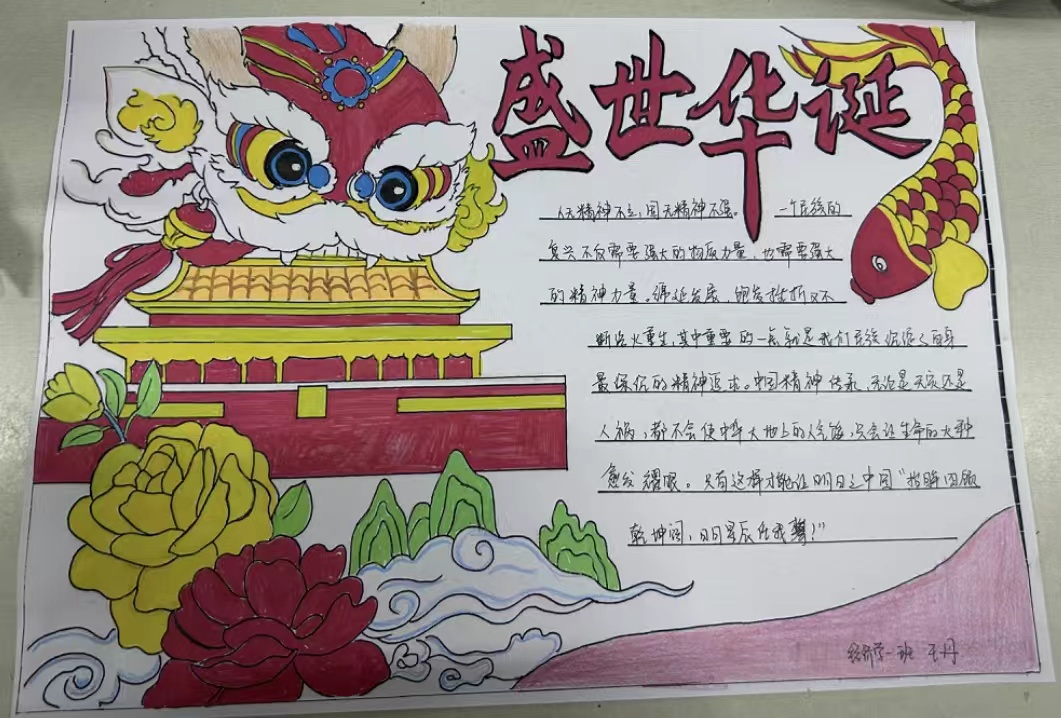 盛世华诞
人无精神不立,国无精神不强。 一个民族的
复兴不仅需要强大的物质力量,也需要强大
的精神力量。绵延发展,饱受挫折又不
断浴火重生,其中重要的一点就是我们民族
最深沉的精神追求。中国精神传承,无论是天灾还是
人祸,都不会使中华大地上的人气馁,只会让生命的火种
愈发耀眼。只有这样才能让明日之中国"指瞬
乾坤阔,日月星辰任我
经济学一班 王丹